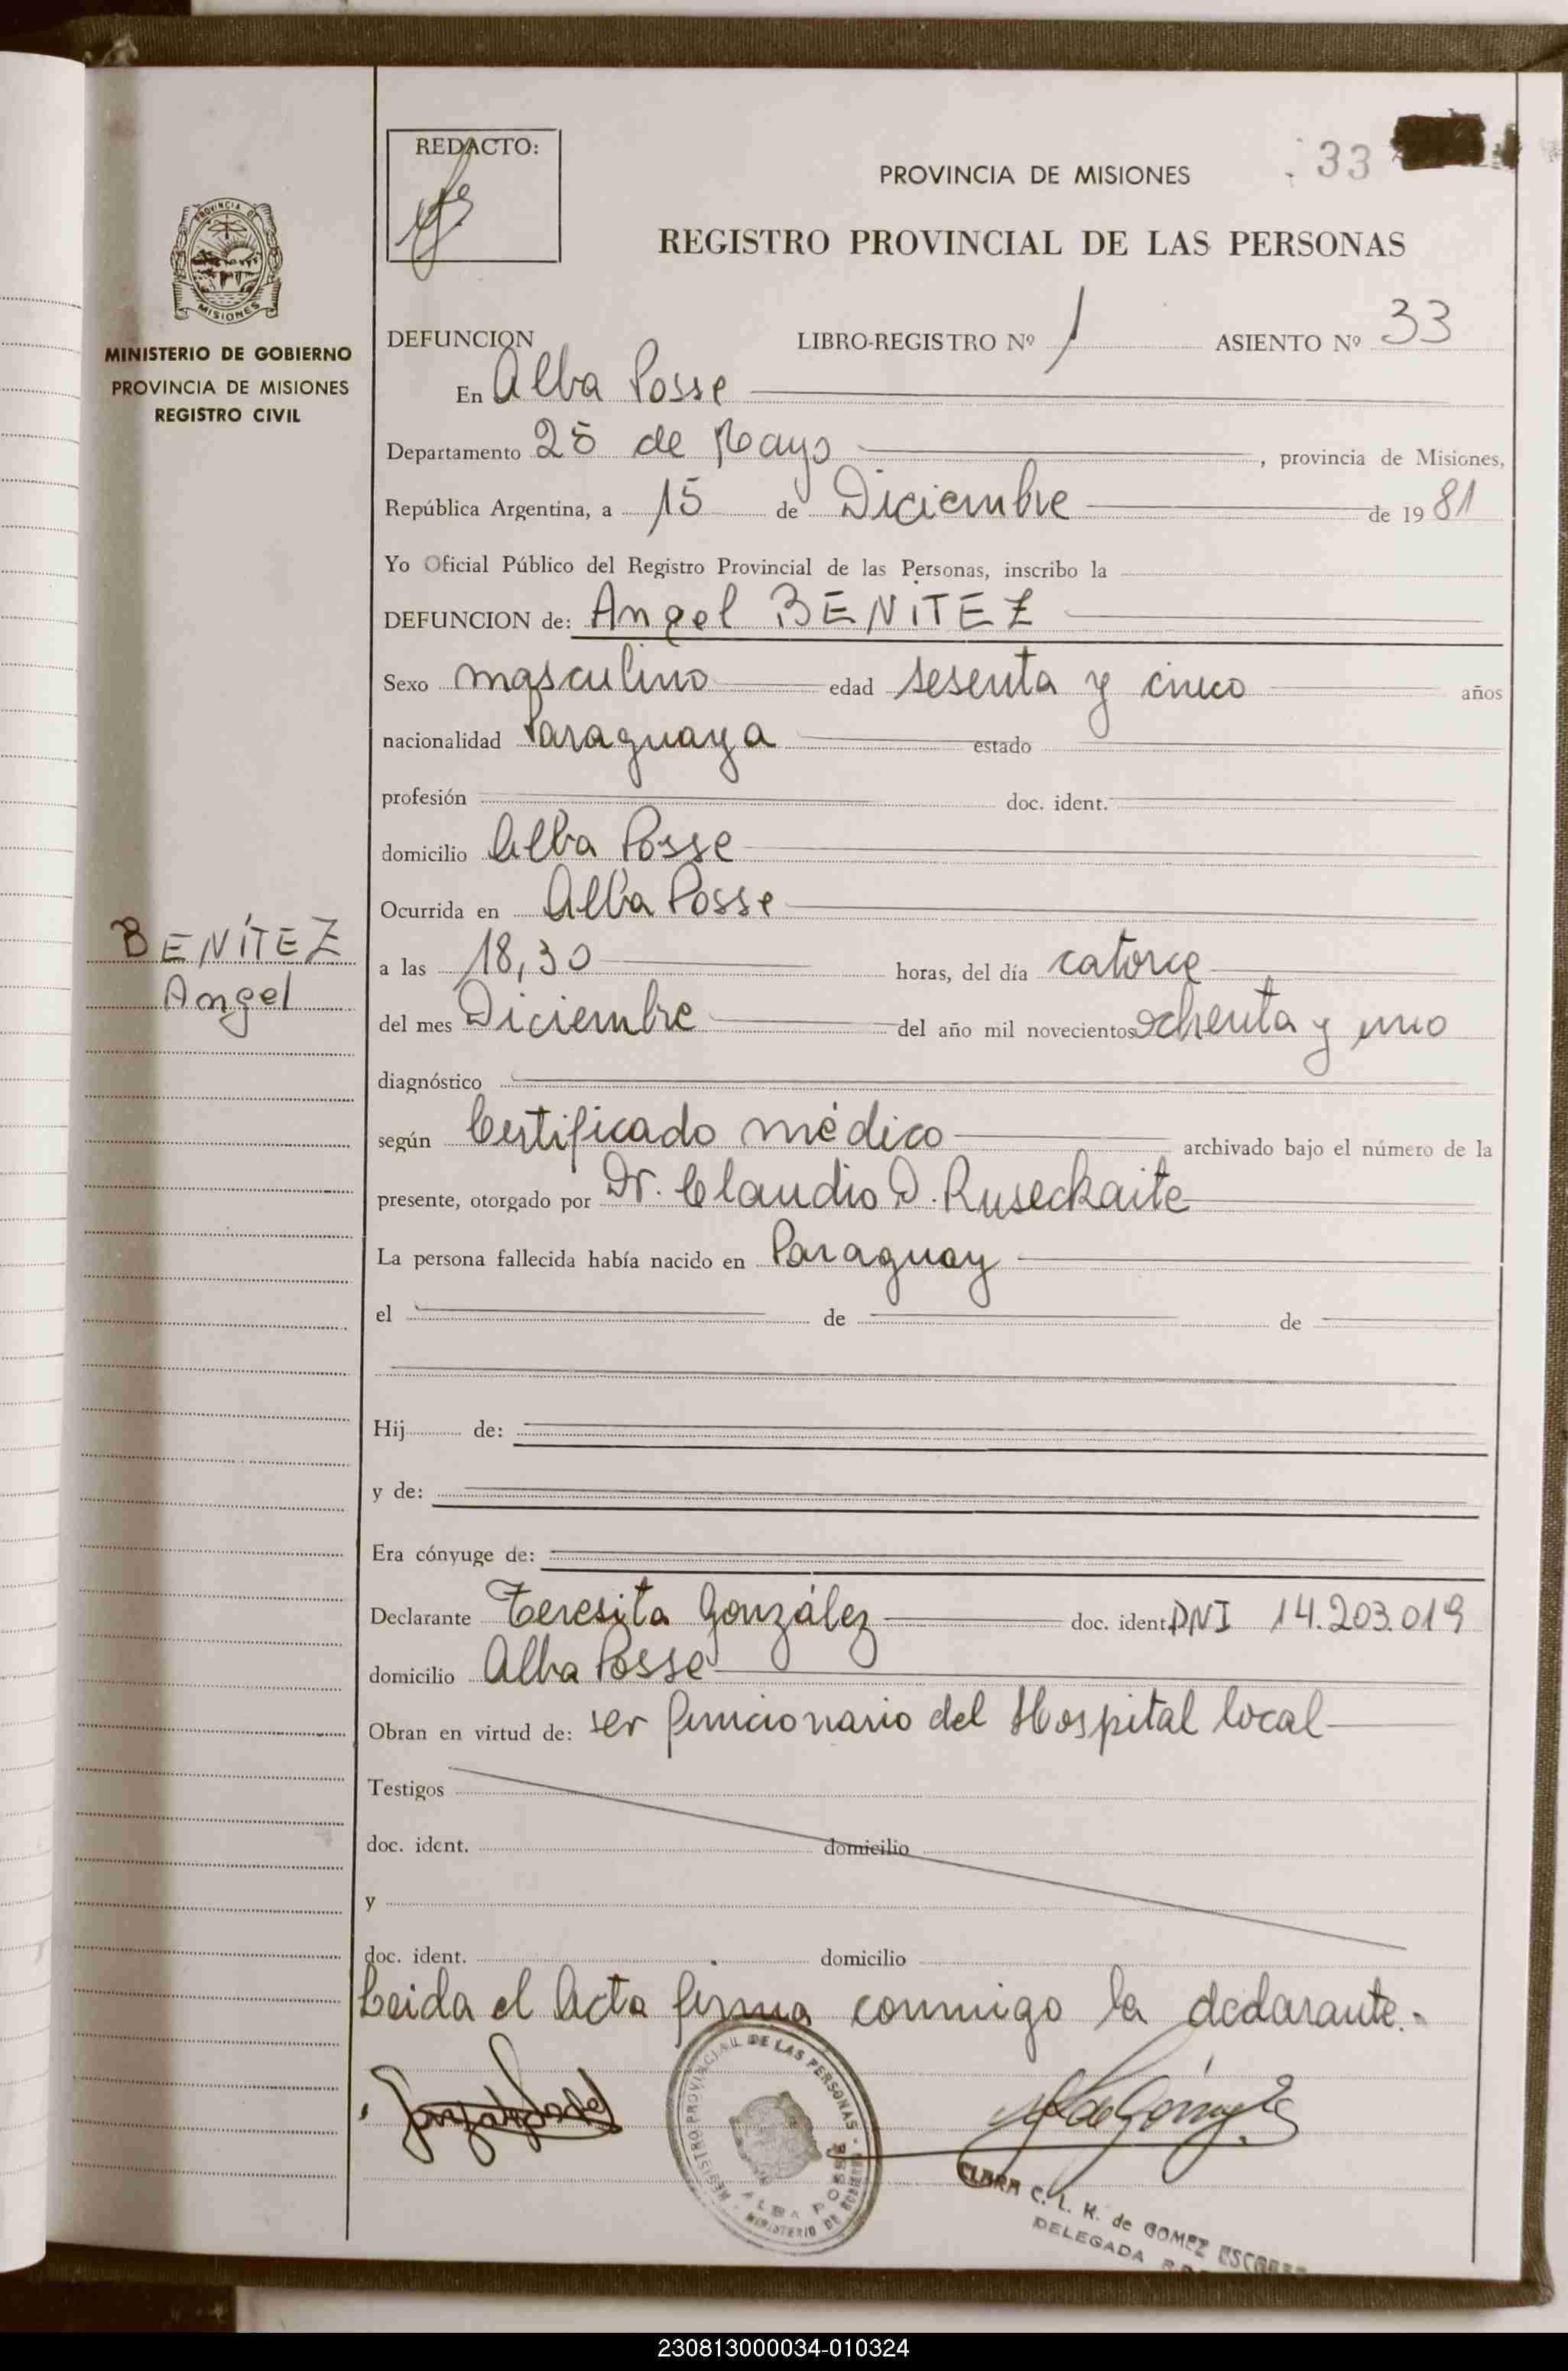 REDACTO:
PROVINCIA DE MISIONES
33
REGISTRO PROVINCIAL DE LAS PERSONAS
PROVINCIA DE
MISIONES
MINISTERIO DE GOBIERNO
PROVINCIA DE MISIONES
REGISTRO CIVIL
DEFUNCION LIBRO-REGISTRO Nº 1 ASIENTO Nº 33
En Alba Posse
Departamento 25 de Mayo, provincia de Misiones,
República Argentina, a 15 de Diciembre de 1981
Yo Oficial Público del Registro Provincial de las Personas, inscribo la
DEFUNCION de: Angel BENITEZ
Sexo masculino edad sesenta y cinco años
nacionalidad Paraguaya estado
profesión doc. ident.
domicilio Alba Posse
Ocurrida en Alba Posse
BENÍTEZ
Angel
a las 18,30 horas, del día catorce
del mes Diciembre del año mil novecientos ochenta y uno
diagnóstico
según Certificado médico archivado bajo el número de la
presente, otorgado por Dr. Claudio D. Ruseckaite
La persona fallecida había nacido en Paraguay
el de de
Hij de:
y de:
Era cónyuge de:
Declarante Teresita González doc. ident. DNI 14.203.019
domicilio Alba Posse
Obran en virtud de: ser funcionario del Hospital local
Testigos
doc. ident. domicilio
y
doc. ident. domicilio
Leida el Acta firma conmigo la declarante.-
REGISTRO PROVINCIAL DE LAS PERSONAS - MINISTERIO DE GOBIERNO
ALBA POSSE
CLARA C. L. K. de GOMEZ
DELEGADA
230813000034-010324